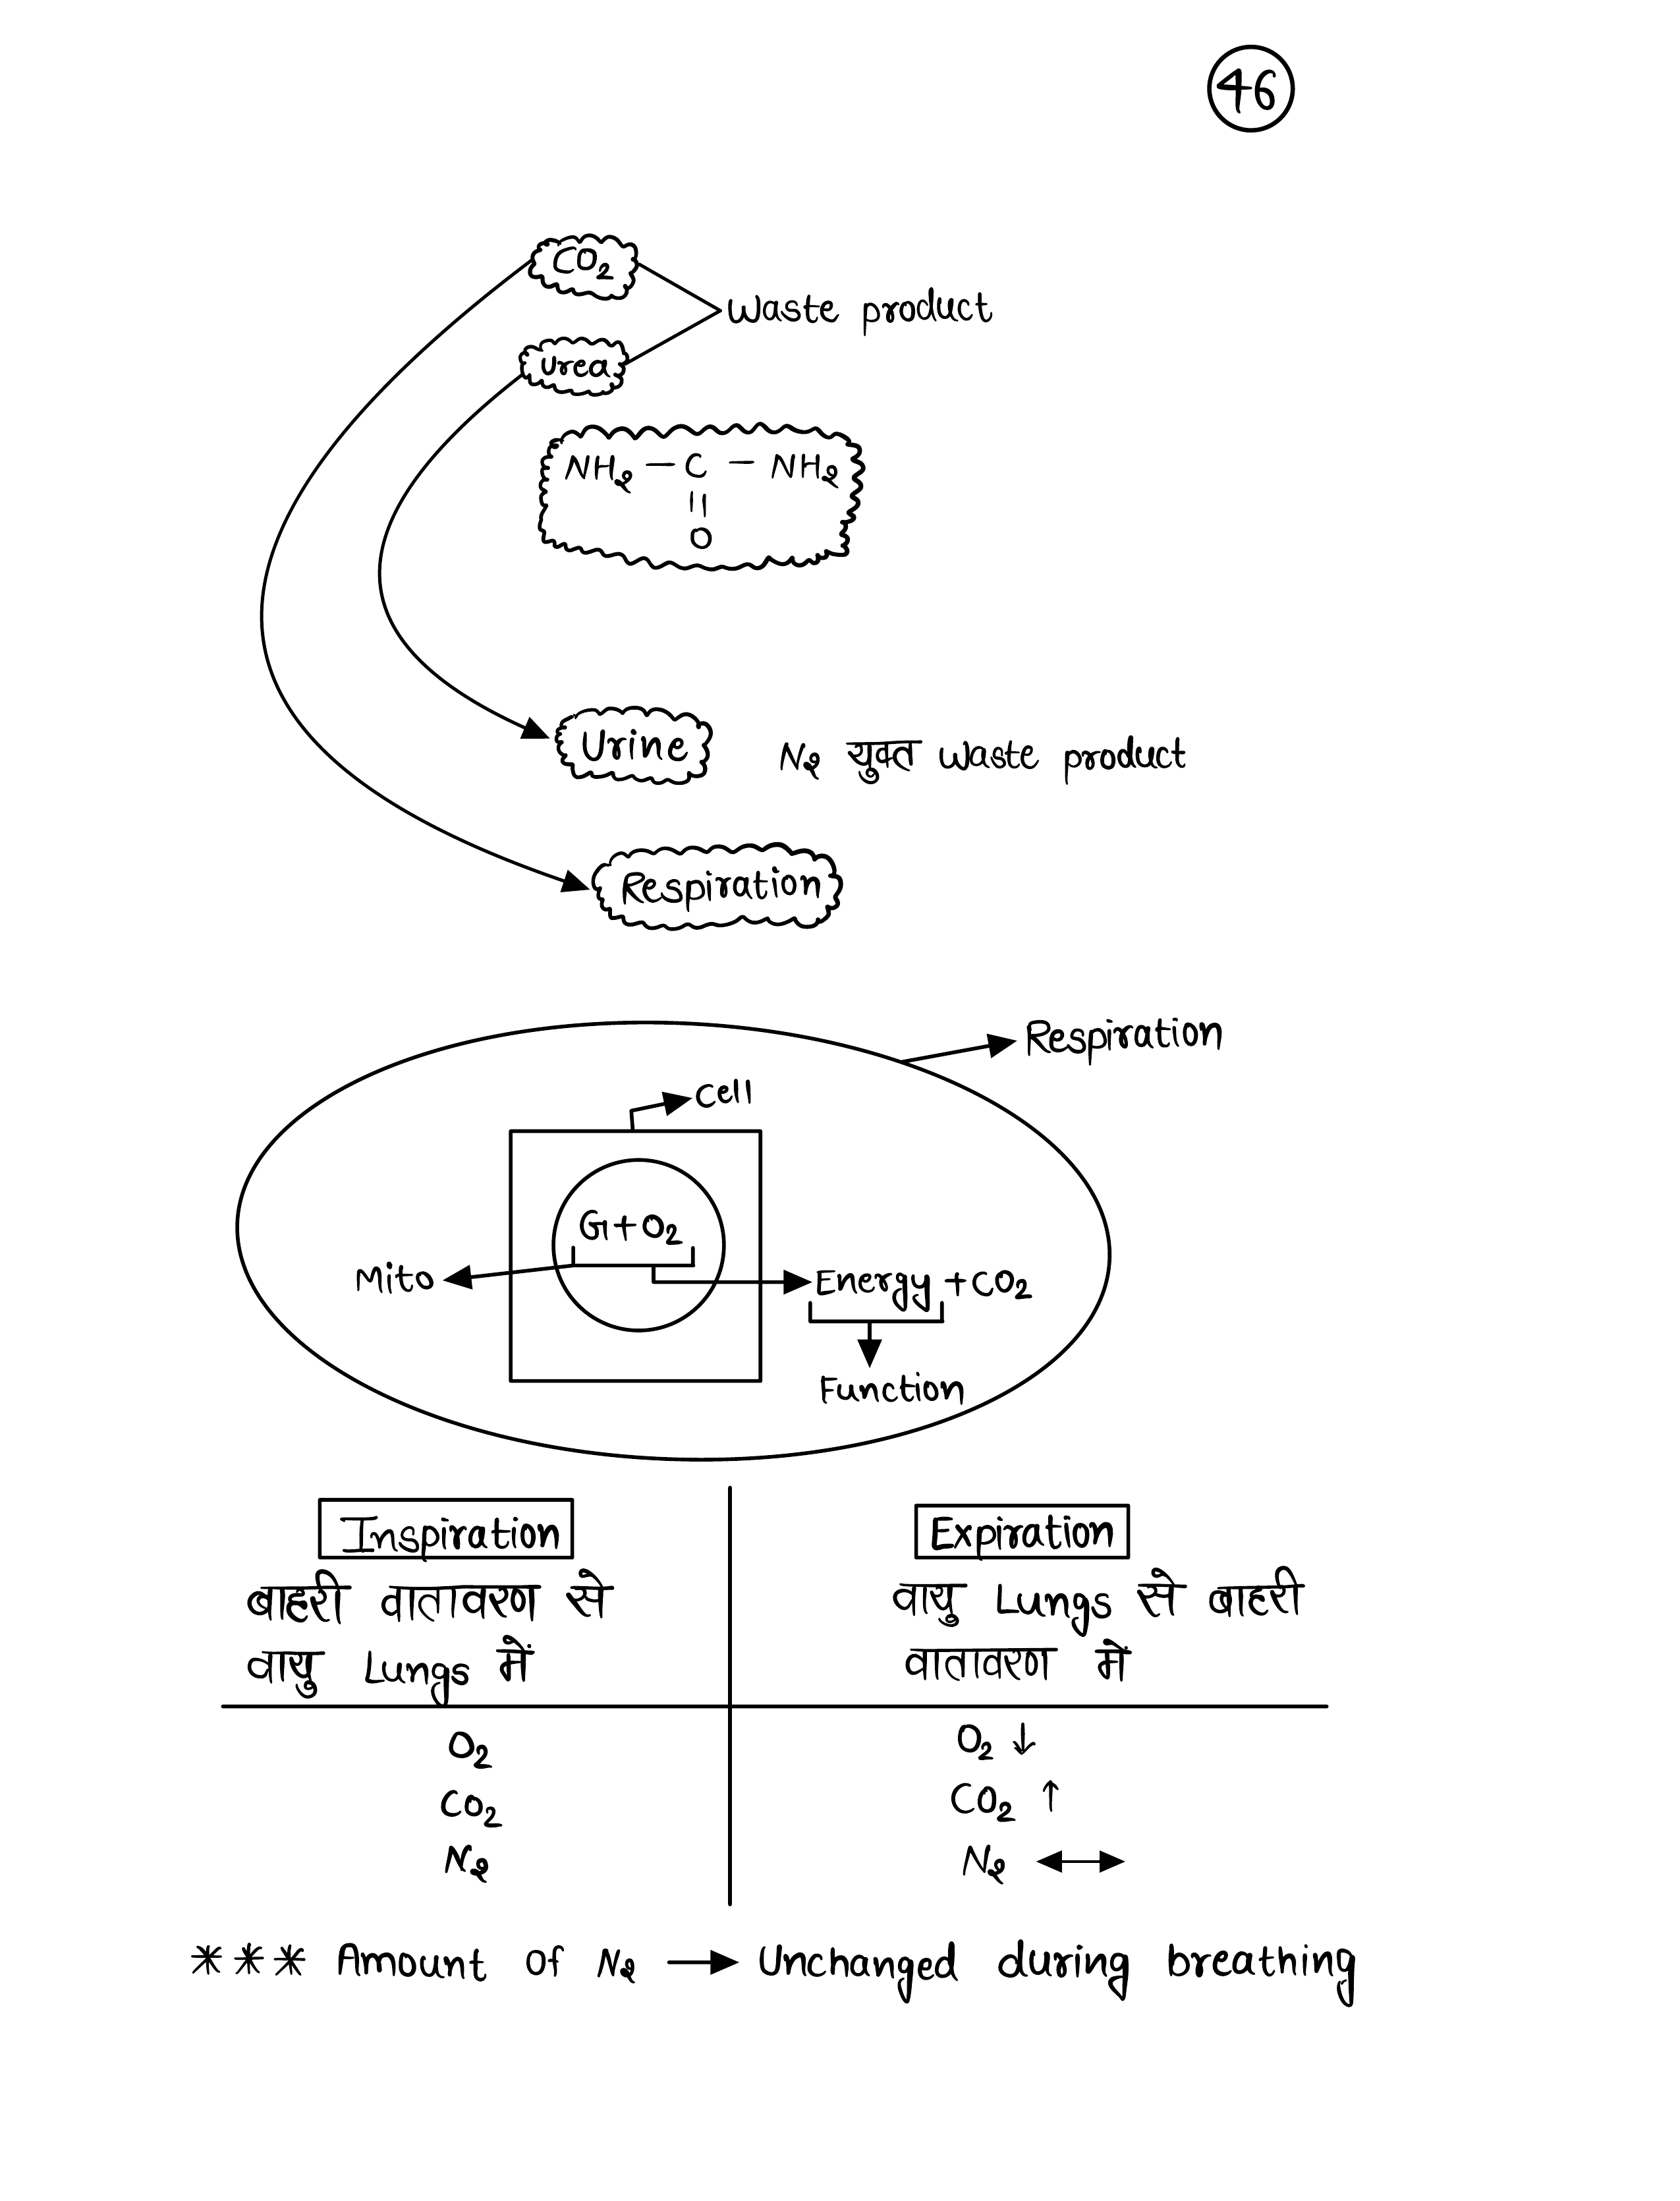 46
CO₂
Waste product
Urea
NH₂ — C — NH₂
||
O
Urine N₂ युक्त Waste product
Respiration
Respiration
Cell
G+O₂
Mito
Energy +CO₂
Function
Inspiration
बाहरी वातावरण से
वायु Lungs में
Expiration
वायु Lungs से बाहरी
वातावरण में
O₂
CO₂
N₂
O₂ ↓
CO₂ ↑
N₂ ↔
*** Amount Of N₂ → Unchanged during breathing